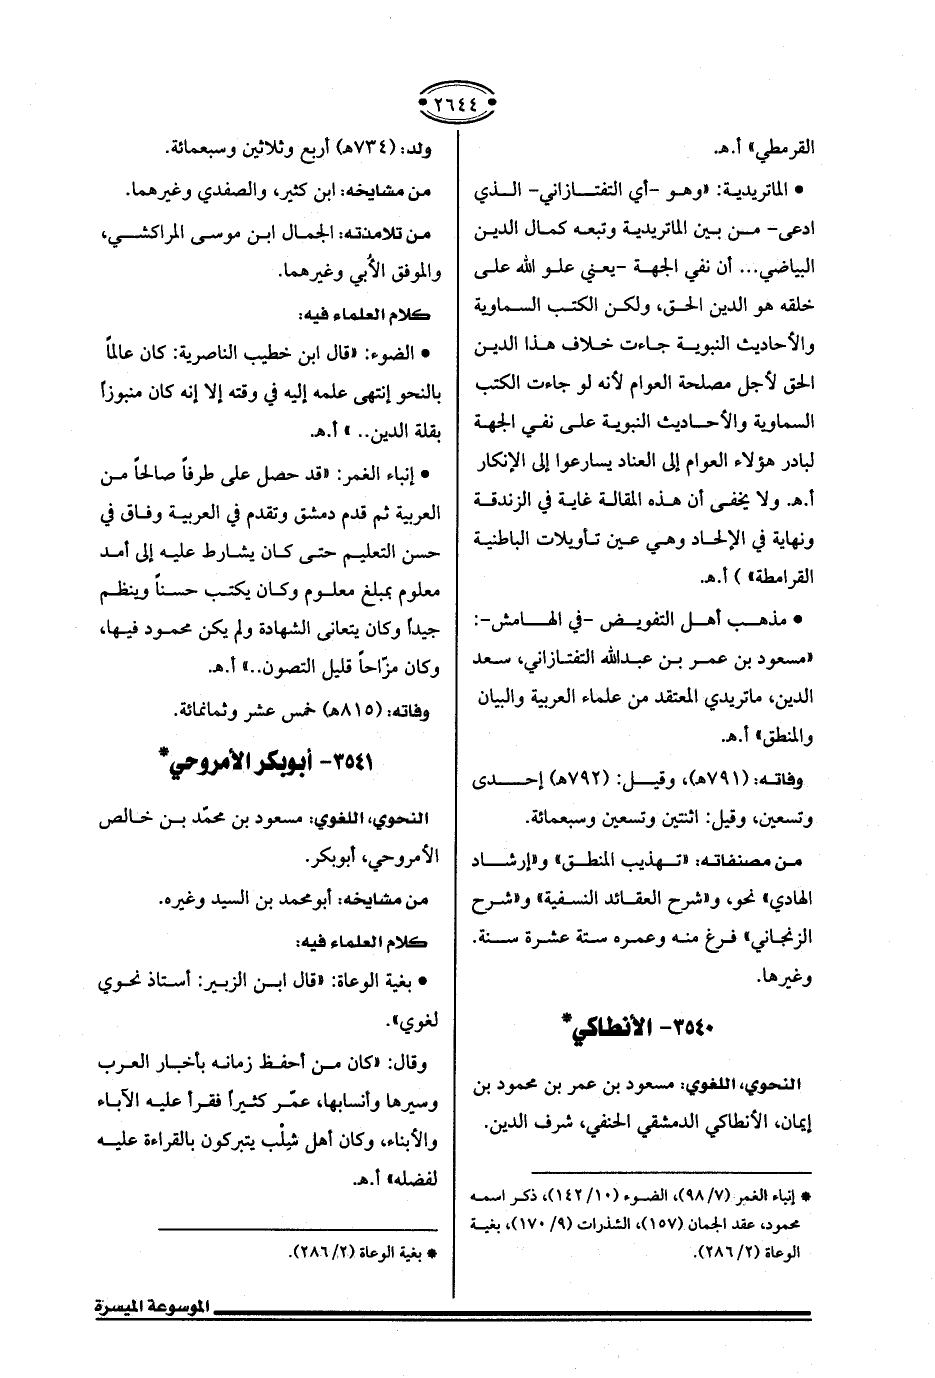 ٢٦٤٤
القرمطي» أ.هـ.
• الماتريدية: «وهو -أي التفتازاني- الذي
ادعى- من بين الماتريدية وتبعه كمال الدين
البياضي... أن نفي الجهة -يعني علو الله على
خلقه هو الدين الحق، ولكن الكتب السماوية
والأحاديث النبوية جاءت خلاف هذا الدين
الحق لأجل مصلحة العوام لأنه لو جاءت الكتب
السماوية والأحاديث النبوية على نفي الجهة
لبادر هؤلاء العوام إلى العناد يسارعوا إلى الإنكار
أ.هـ. ولا يخفى أن هذه المقالة غاية في الزندقة
ونهاية في الإلحاد وهي عين تأويلات الباطنية
القرامطة» ) أ.هـ.
• مذهب أهل التفويض -في الهامش-:
«مسعود بن عمر بن عبدالله التفتازاني، سعد
الدين، ماتريدي المعتقد من علماء العربية والبيان
والمنطق» أ.هـ.
وفاته: (٧٩١هـ)، وقيل: (٧٩٢هـ) إحدى
وتسعين، وقيل: اثنتين وتسعين وسبعمائة.
من مصنفاته: «تهذيب المنطق» و«إرشاد
الهادي» نحو، و«شرح العقائد النسفية» و«شرح
الزنجاني» فرغ منه وعمره ستة عشرة سنة.
وغيرها.
٣٥٤٠- الأنطاكي*
النحوي، اللغوي: مسعود بن عمر بن محمود بن
إيمان، الأنطاكي الدمشقي الحنفي، شرف الدين.
* إنباء الغمر (٧/ ٩٨)، الضوء (١٠/ ١٤٢)، ذكر اسمه
محمود، عقد الجمان (١٥٧)، الشذرات (٩/ ١٧٠)، بغية
الوعاة (٢/ ٢٨٦).
ولد: (٧٣٤هـ) أربع وثلاثين وسبعمائة.
من مشايخه: ابن كثير، والصفدي وغيرهما.
من تلامذته: الجمال ابن موسى المراكشي،
والموفق الأُبي وغيرهما.
كلام العلماء فيه:
• الضوء: «قال ابن خطيب الناصرية: كان عالماً
بالنحو إنتهى علمه إليه في وقته إلا إنه كان منبوزاً
بقلة الدين.. » أ.هـ.
• إنباء الغمر: «قد حصل على طرفاً صالحاً من
العربية ثم قدم دمشق وتقدم في العربية وفاق في
حسن التعليم حتى كان يشارط عليه إلى أمد
معلوم بمبلغ معلوم وكان يكتب حسناً وينظم
جيداً وكان يتعانى الشهادة ولم يكن محمود فيها،
وكان مزّاحاً قليل التصون..» أ.هـ.
وفاته: (٨١٥هـ) خمس عشر وثمانمائة.
٣٥٤١- أبوبكر الأمروحي*
النحوي، اللغوي: مسعود بن محمّد بن خالص
الأمروحي، أبوبكر.
من مشايخه: أبومحمد بن السيد وغيره.
كلام العلماء فيه:
• بغية الوعاة: «قال ابن الزبير: أستاذ نحوي
لغوي».
وقال: «كان من أحفظ زمانه بأخبار العرب
وسيرها وأنسابها، عمّر كثيراً فقرأ عليه الآباء
والأبناء، وكان أهل شِلْب يتبركون بالقراءة عليه
لفضله» أ.هـ.
* بغية الوعاة (٢/ ٢٨٦).
الموسوعة الميسرة